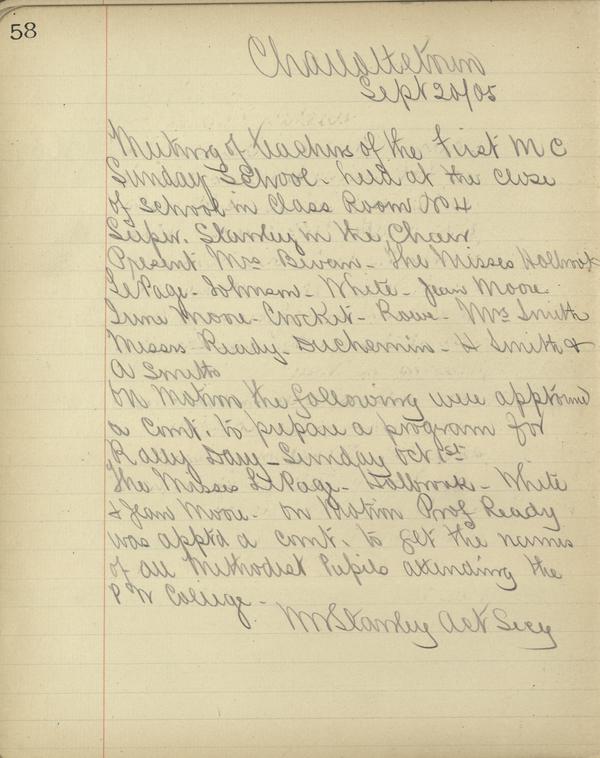 58
Charlottetown
Sept 20/05
Meeting of teachers of the First M C
Sunday School - held at the close
of school in Class Room No 4
Super. Stanley in the Chair
Present Mrs Bevan - The Misses Holbrook
LePage - Johnson - White - Jean Moore
June Moore - Crocket - Rowe - Mrs Smith
Messrs Ready - Duchemin - H Smith &
A Smith
On Motion the following were appointed
a Comt. to prepare a program for
Rally Day - Sunday Oct 1st
The Misses LePage - Holbrook - White
& Jean Moore - On Motion Prof Ready
was apptd a comt. to get the names
of all Methodist Pupils attending the
P W College -
WW Stanley Act Secy